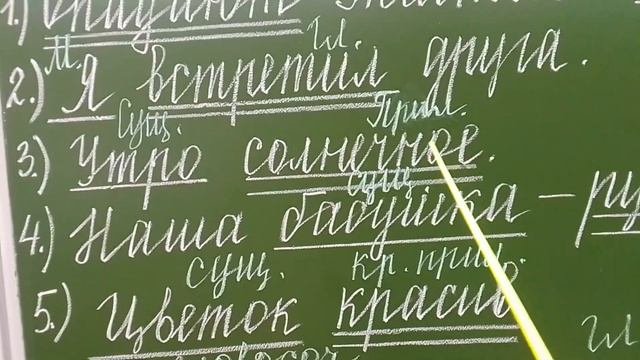 1.)
М. гл.
2.) Я встретил друга.
Сущ. Прил.
3.) Утро солнечное.
сущ.
4.) Наша бабушка – 
сущ. кр. прил.
5.) Цветок красив
гл